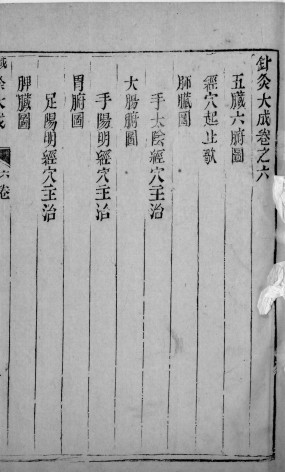 針灸大成卷之六
五臟六腑圖
經穴起止歌
肺臟圖
手太陰經穴主治
大腸腑圖
手陽明經穴主治
胃腑圖
足陽明經穴主治
脾臟圖
大成
六卷